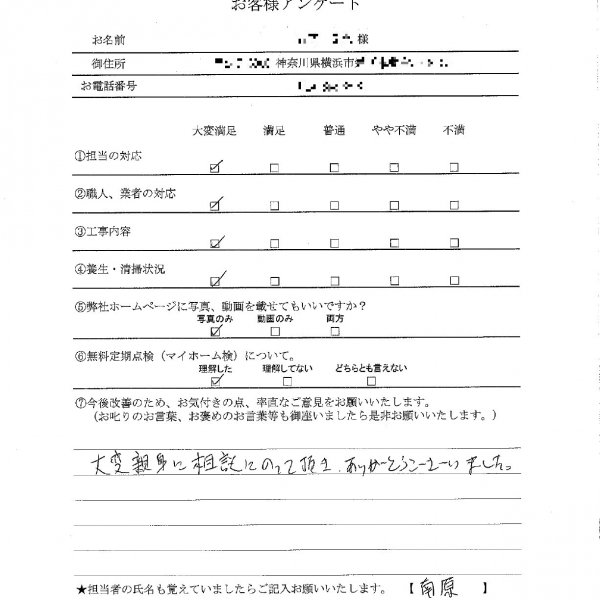 お客様アンケート
お名前 様
御住所 神奈川県横浜市
お電話番号
大変満足 満足 普通 やや不満 不満
①担当の対応
②職人、業者の対応
③工事内容
④養生・清掃状況
⑤弊社ホームページに写真、動画を載せてもいいですか?
写真のみ 動画のみ 両方
⑥無料定期点検(マイホーム検)について。
理解した 理解してない どちらとも言えない
⑦今後改善のため、お気付きの点、率直なご意見をお願いいたします。
(お叱りのお言葉、お褒めのお言葉等も御座いましたら是非お願いいたします。)
大変親身に相談にのって頂き、ありがとうございました。
★担当者の氏名も覚えていましたらご記入お願いいたします。 【南原】